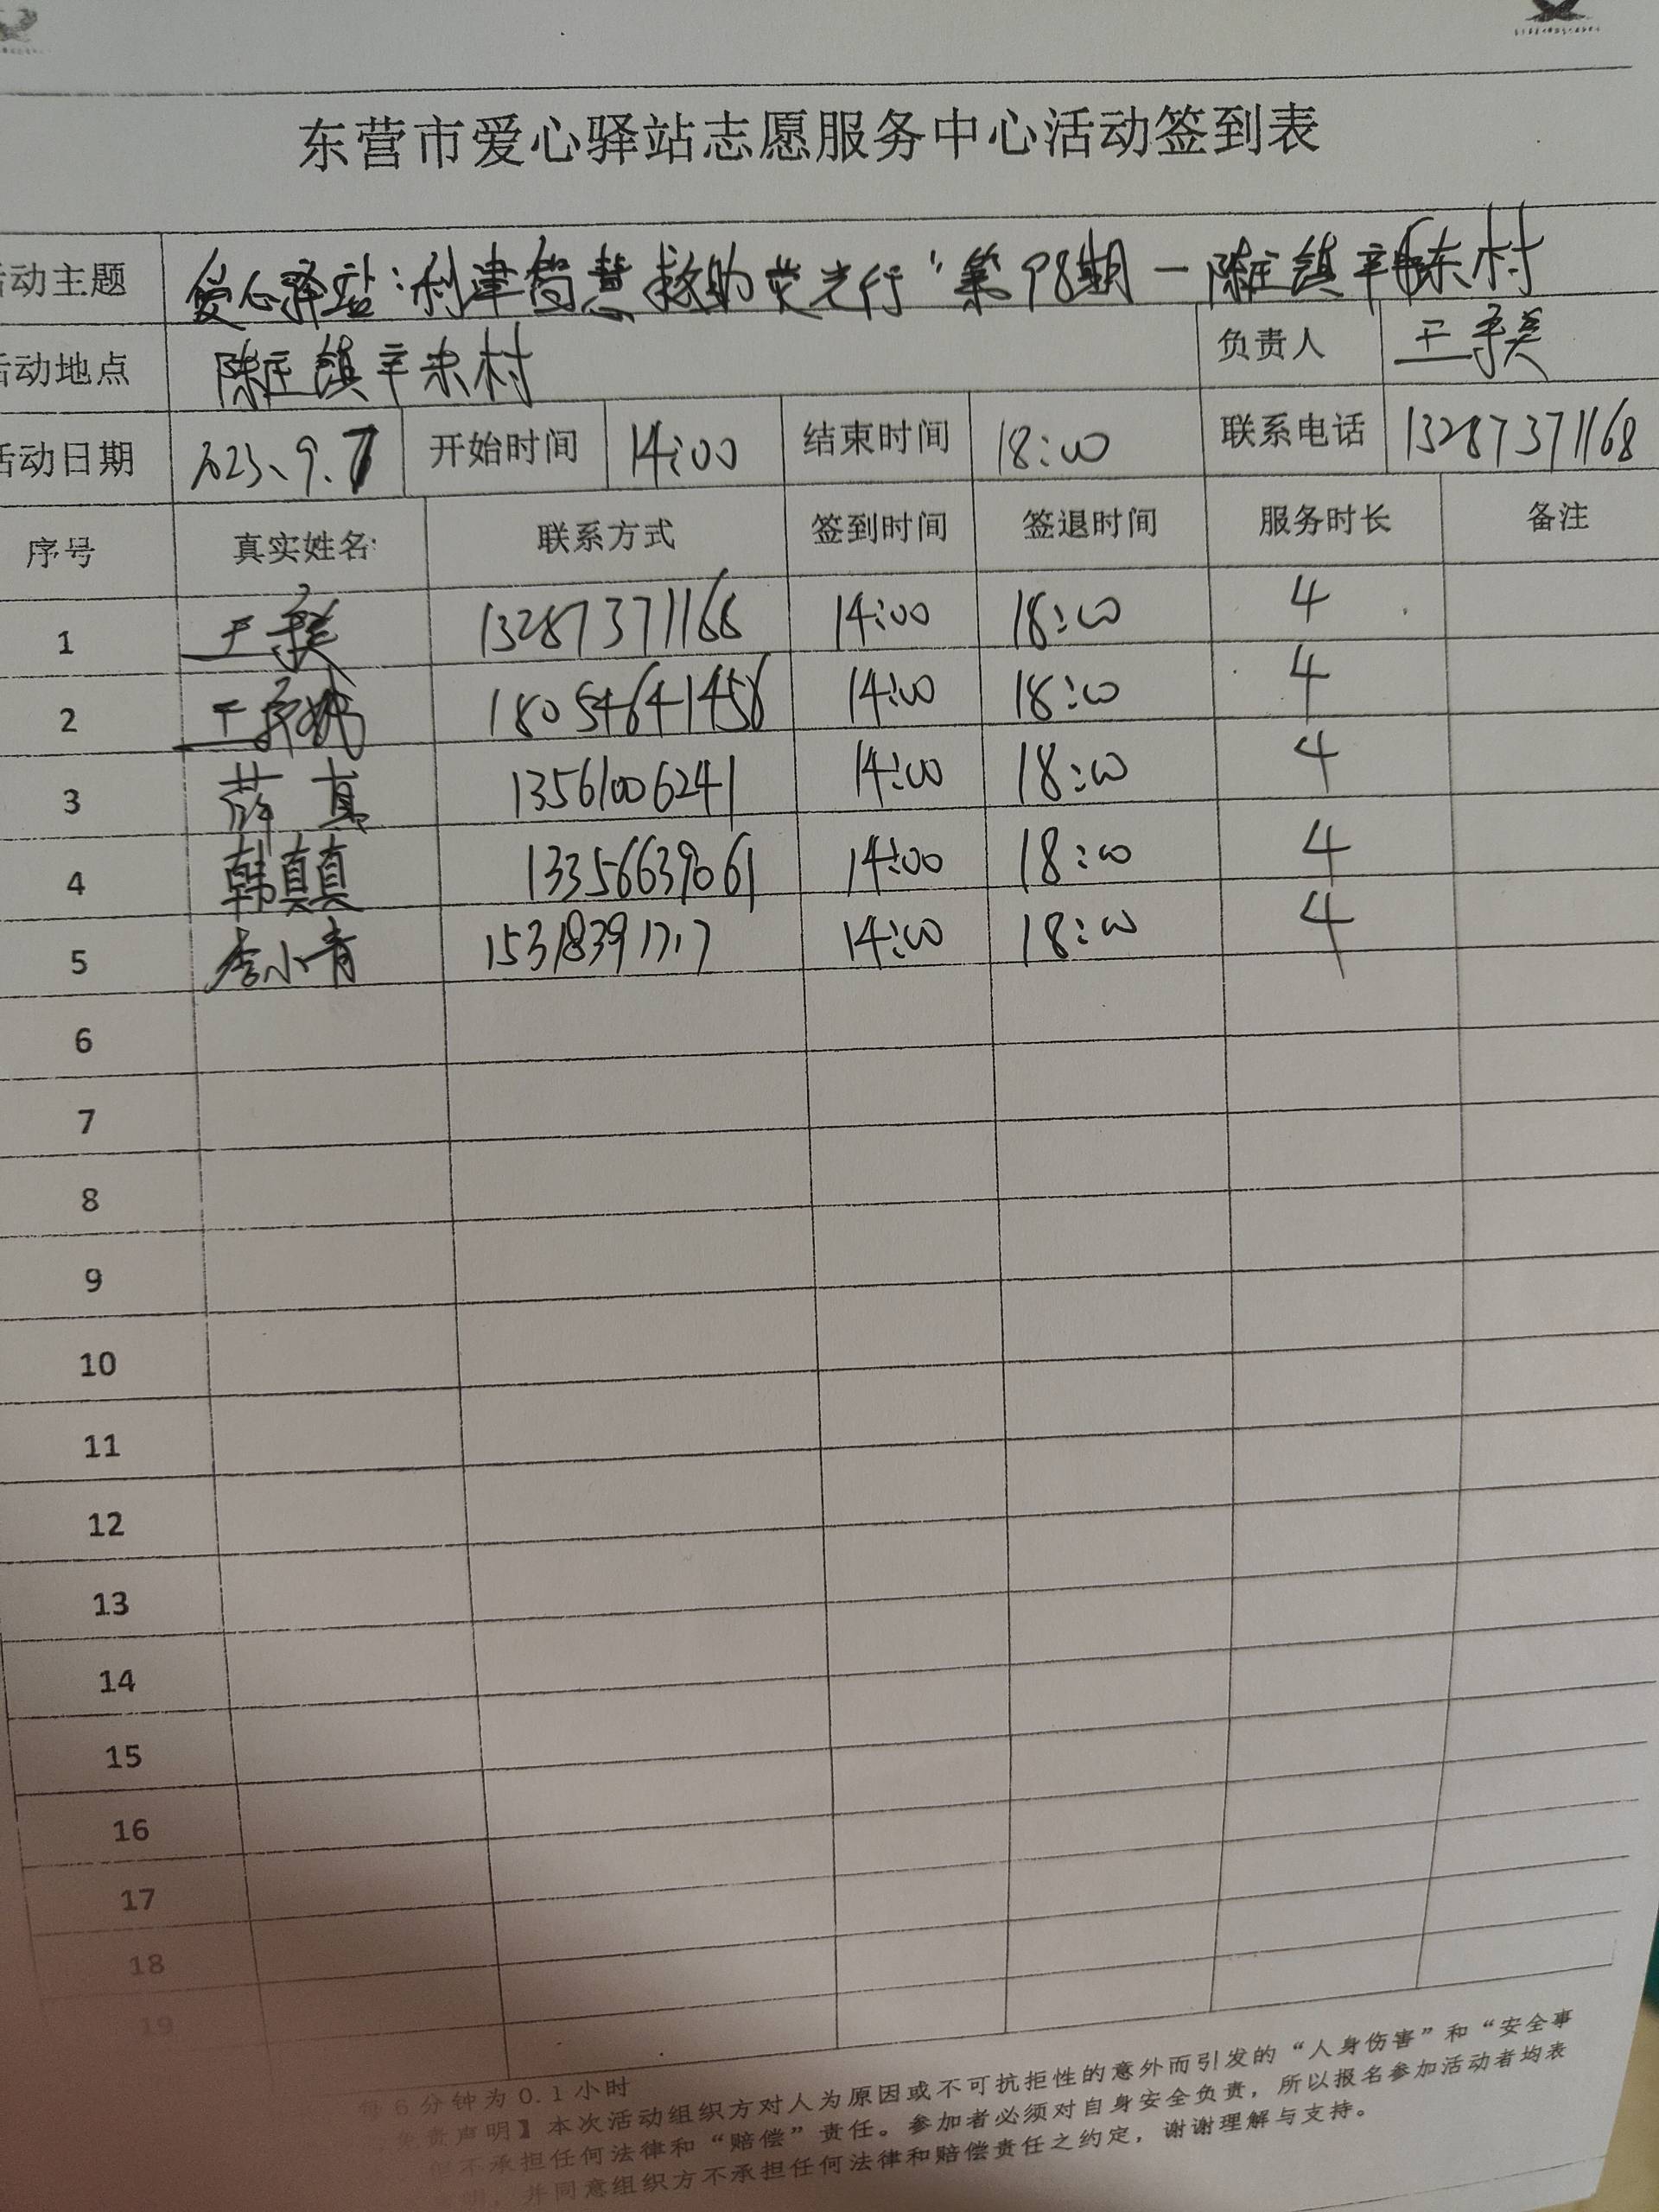 东营市爱心驿站志愿服务中心活动签到表
动主题 爱心驿站:利津智慧救助荧光行"第98期一陈庄镇辛 东村
活动地点 陈庄镇辛 村 负责人 王
活动日期 2023、9.7 开始时间 14:00 结束时间 18:00 联系电话 13287371168
序号 真实姓名 联系方式 签到时间 签退时间 服务时长 备注
1 王 13287371168 14:00 18:00 4
2 王 18054641456 14:00 18:00 4
3 薛真 13561006241 14:00 18:00 4
4 韩真真 13356639061 14:00 18:00 4
5 李小青 15318391717 14:00 18:00 4
6
7
8
9
10
11
12
13
14
15
16
17
18
19
每6分钟为0.1小时
免责声明】本次活动组织方对人为原因或不可抗拒性的意外而引发的“人身伤害”和“安全事
不承担任何法律和“赔偿”责任。参加者必须对自身安全负责，所以报名参加活动者均表
明，并同意组织方不承担任何法律和赔偿责任之约定，谢谢理解与支持。